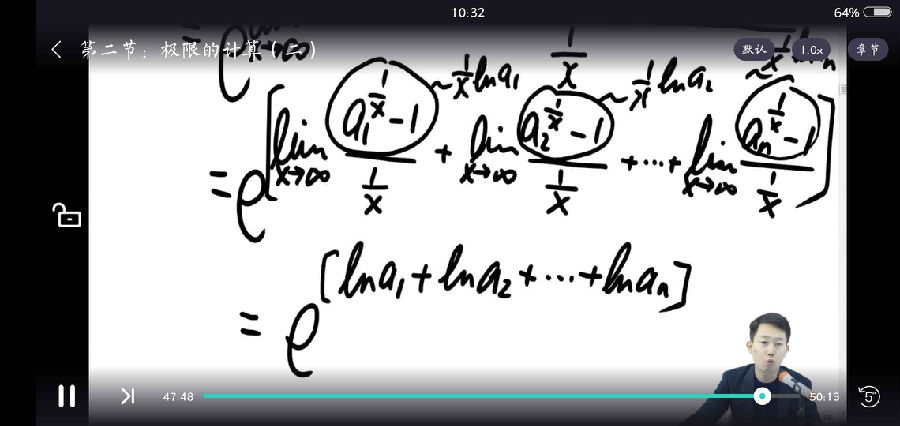 10:32
64%
第二节：极限的计算（二）
默认
1.0x
章节
= e
x→∞
1/x
~ 1/x ln a₁
~ 1/x ln a₂
= e^[lim x→∞ (a₁^(1/x) - 1)/(1/x) + lim x→∞ (a₂^(1/x) - 1)/(1/x) + ··· + lim x→∞ (aₙ^(1/x) - 1)/(1/x)]
= e^[ln a₁ + ln a₂ + ··· + ln aₙ]
47:48
50:13
5